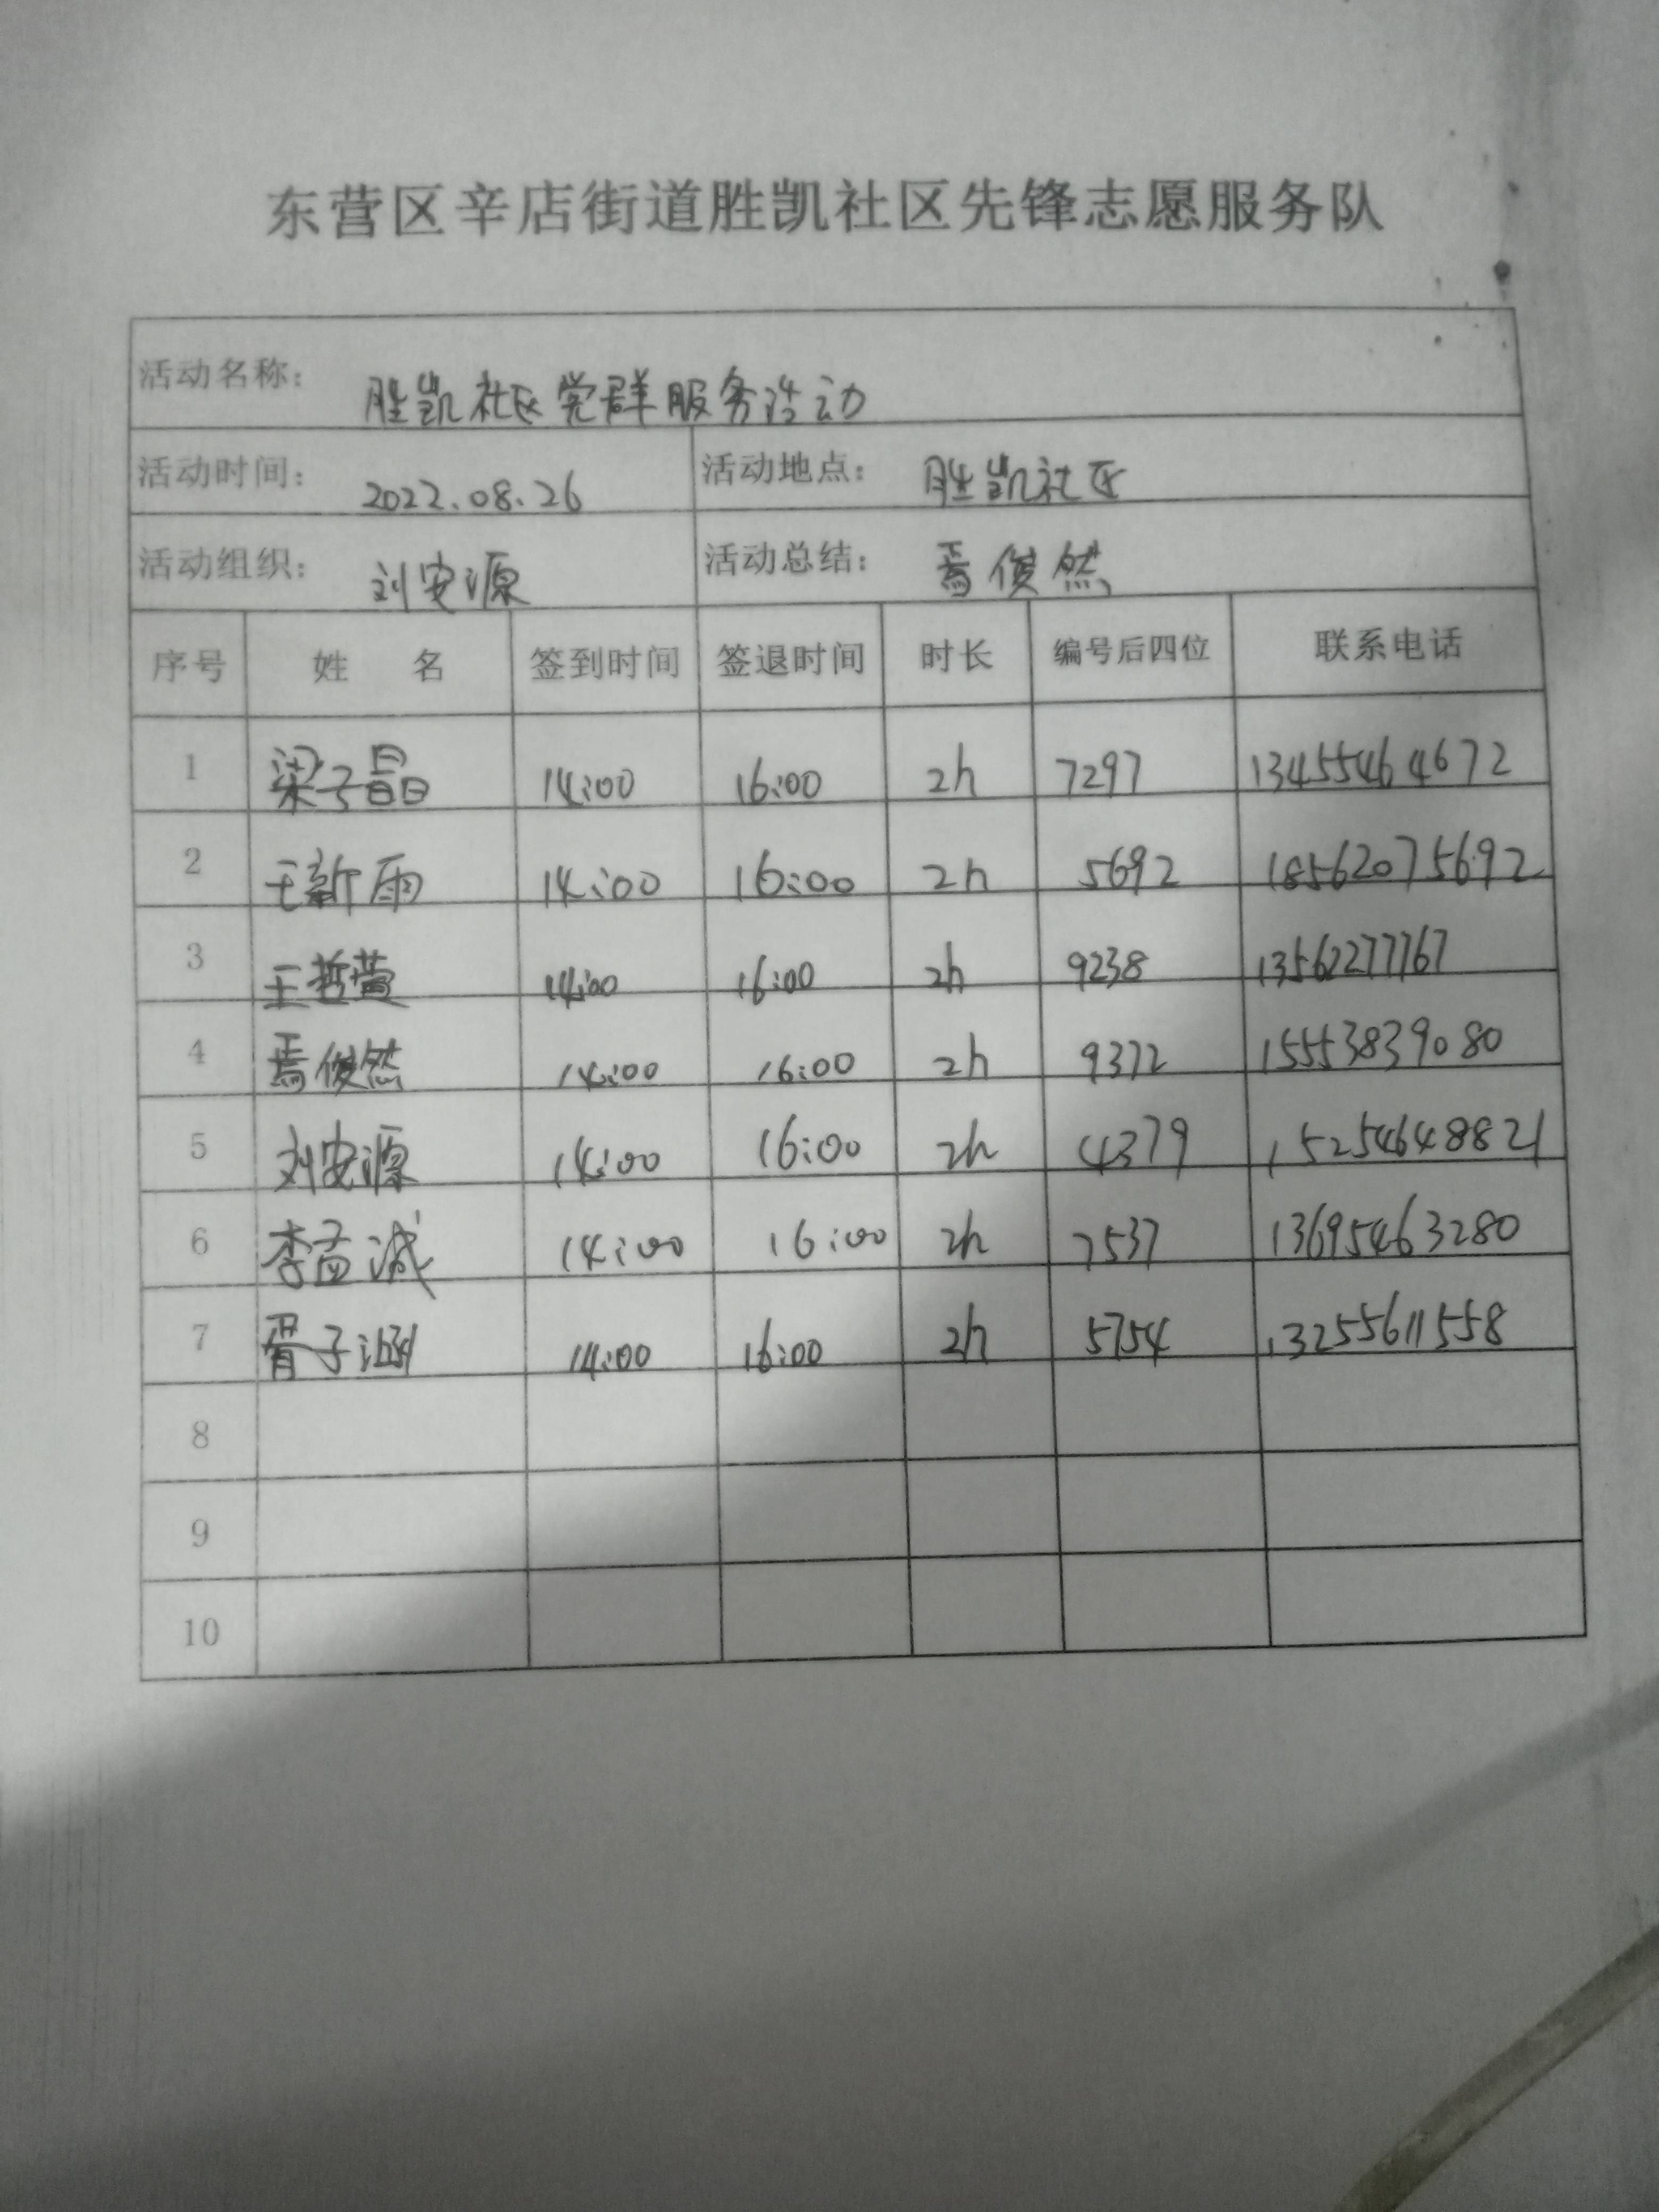 东营区辛店街道胜凯社区先锋志愿服务队
活动名称： 胜凯社区党群服务活动
活动时间： 2022.08.26 活动地点： 胜凯社区
活动组织： 刘安源 活动总结： 焉俊然
序号 姓 名 签到时间 签退时间 时长 编号后四位 联系电话
1 梁子晶 14:00 16:00 2h 7297 13455464672
2 王新雨 14:00 16:00 2h 5692 18562075692
3 王哲萱 14:00 16:00 2h 9238 13562277767
4 焉俊然 14:00 16:00 2h 9372 15553839080
5 刘安源 14:00 16:00 2h 4379 15254648821
6 李孟诚 14:00 16:00 2h 7537 13695463280
7 胥子涵 14:00 16:00 2h 5754 13255611558
8
9
10